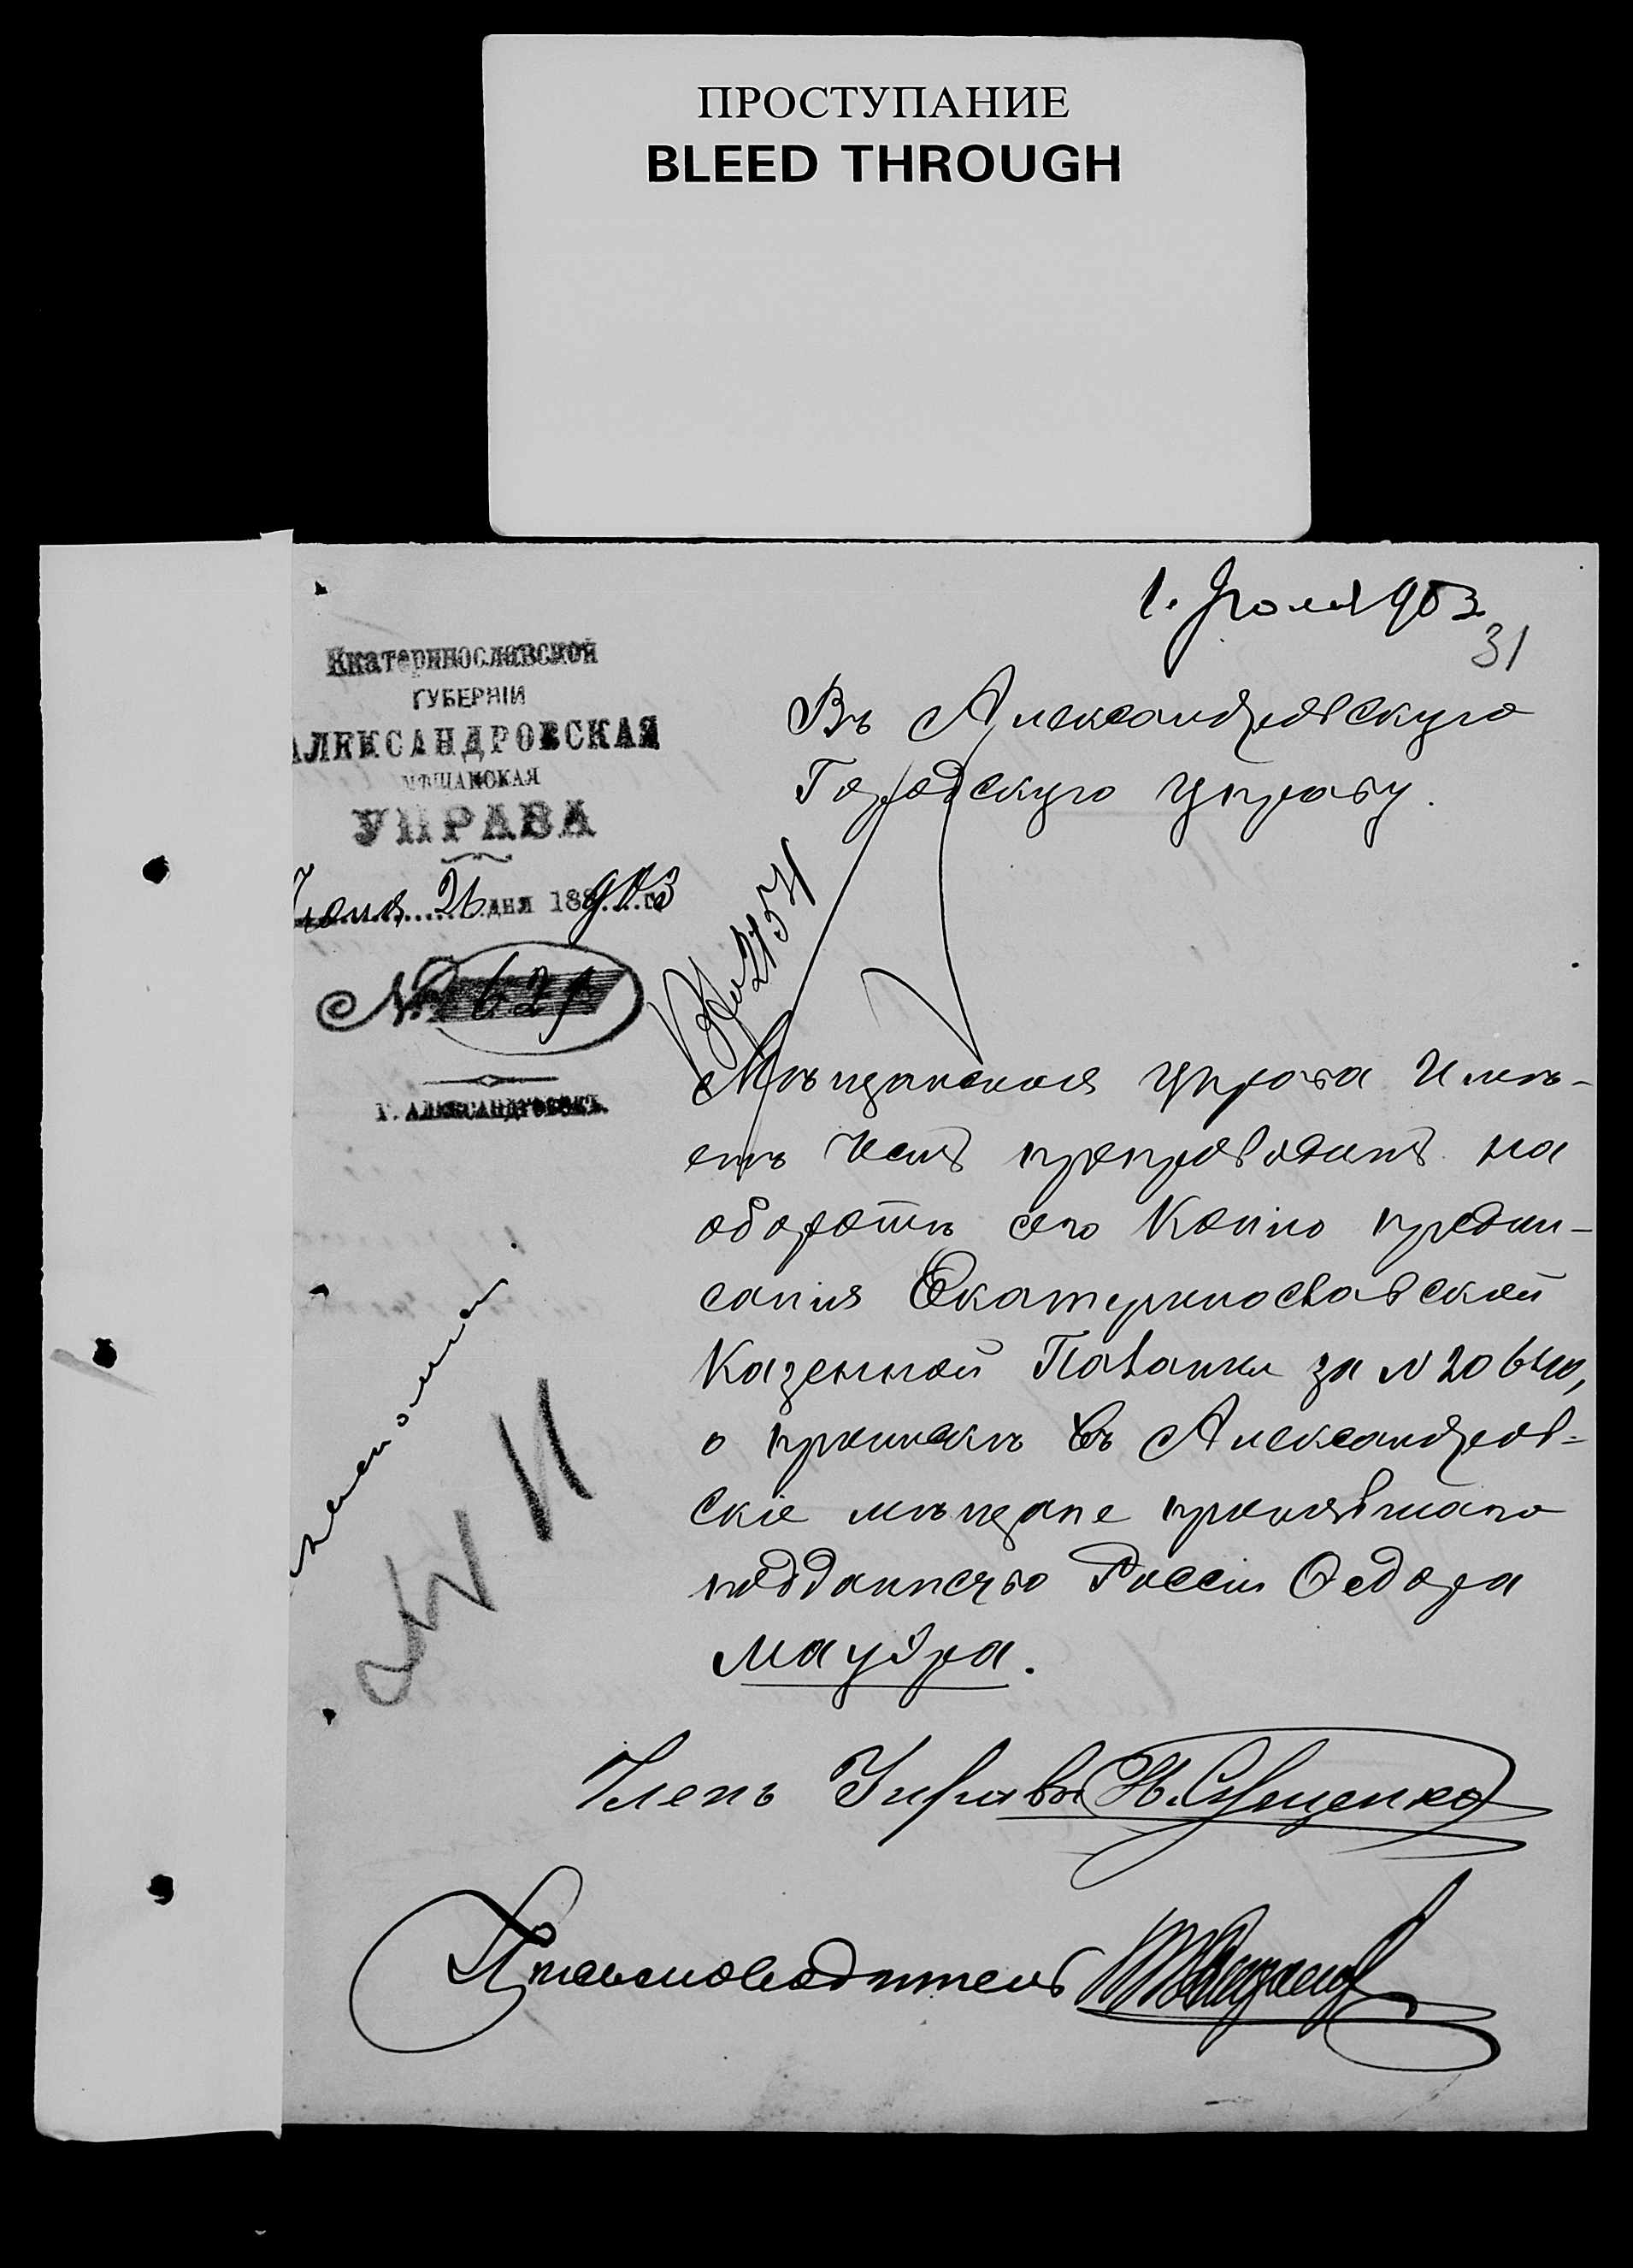 ПРОСТУПАНИЕ
BLEED THROUGH
1. Июля 903
31
Екатеринославской
ГУБЕРНІИ
АЛЕКСАНДРОВСКАЯ
МѢЩАНСКАЯ
УПРАВА
Іюня 26 дня 188 903 г.
№ 621
Г. АЛЕКСАНДРОВСКЪ.
Въ Александровскую
Городскую Управу.
Мѣщанская Управа имѣ-
етъ честь препроводить на
оборотѣ сего копію предпи-
санія Екатеринославской
Казенной Палаты за №
о припискѣ въ Александров-
скіе мѣщане принявшаго
подданство Россіи Ѳедора
Маудра.
Членъ Управы
Письмоводитель